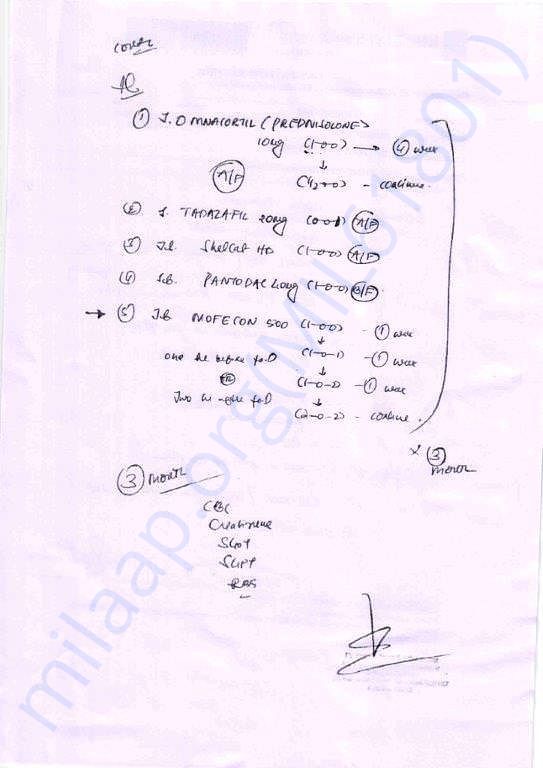 Rx
① T. OMNACORTIL (PREDNISOLONE)
10mg (1-0-0) → ④ week
↓
A/F (1/2-0-0) - continue.
② T. TADALAFIL 20mg (0-0-1) A/F
③ T.b. Shelcal HD (1-0-0) A/F
④ T.b. PANTODAC 40mg (1-0-0) B/F.
→ ⑤ T.b MOFECON 500 (1-0-0) - ① week
↓
one hr before food (1-0-1) - ① week
↓
OR (1-0-2) - ① week
Two hr after food ↓
(2-0-2) - continue.
x ③
month
③ month
CBC
Creatinine
SGOT
SGPT
RBS
milaap.org(MIL61801)